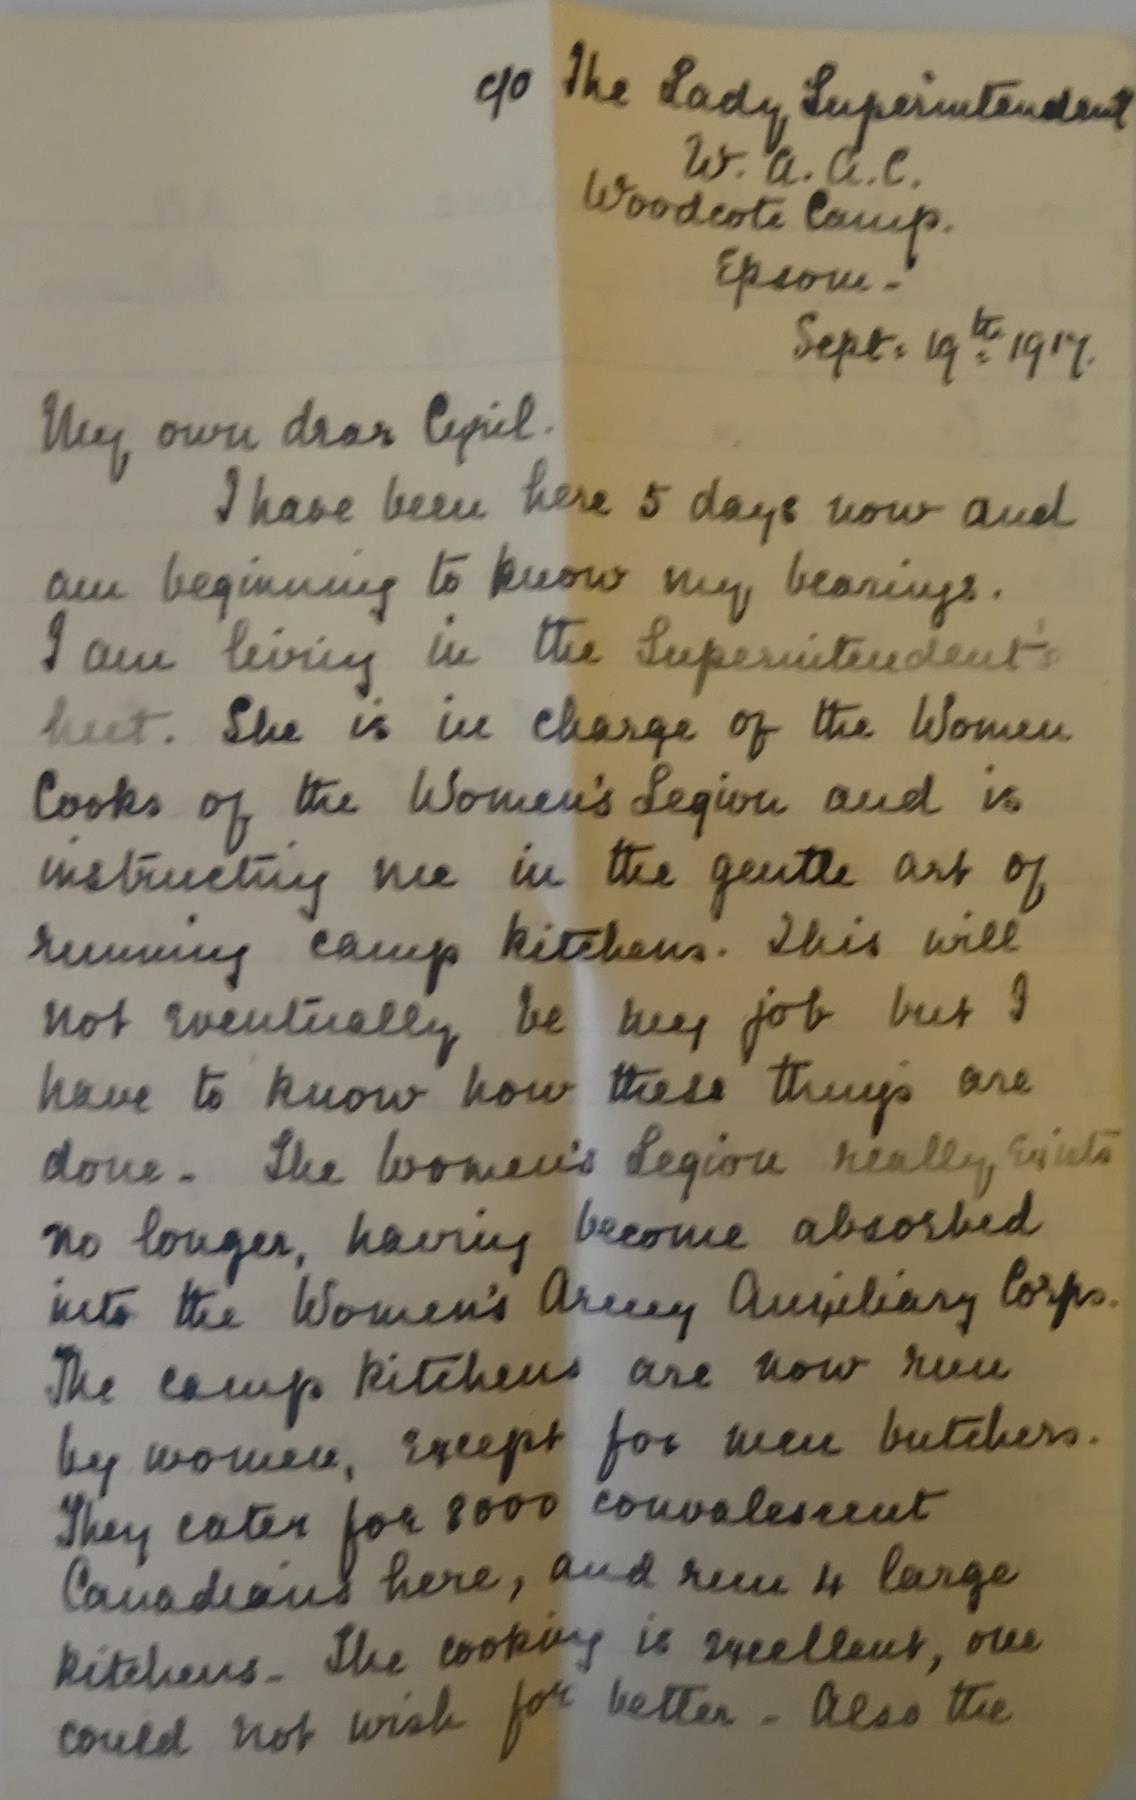 c/o The Lady Superintendent
W. A. A. C.
Woodcote Camp.
Epsom -
Sept: 19th: 1917.
My own dear Cyril.
I have been here 5 days now and
am beginning to know my bearings.
I am living in the Superintendent's
hut. She is in charge of the Women
Cooks of the Women's Legion and is
instructing me in the gentle art of
running camp kitchens. This will
not eventually be my job but I
have to know how these things are
done - The Women's Legion really exists
no longer, having become absorbed
into the Women's Army Auxiliary Corps.
The camp kitchens are now run
by women, except for men butchers.
They cater for 8000 convalescent
Canadians here, and run 4 large
kitchens - The cooking is excellent, one
could not wish for better - Also the